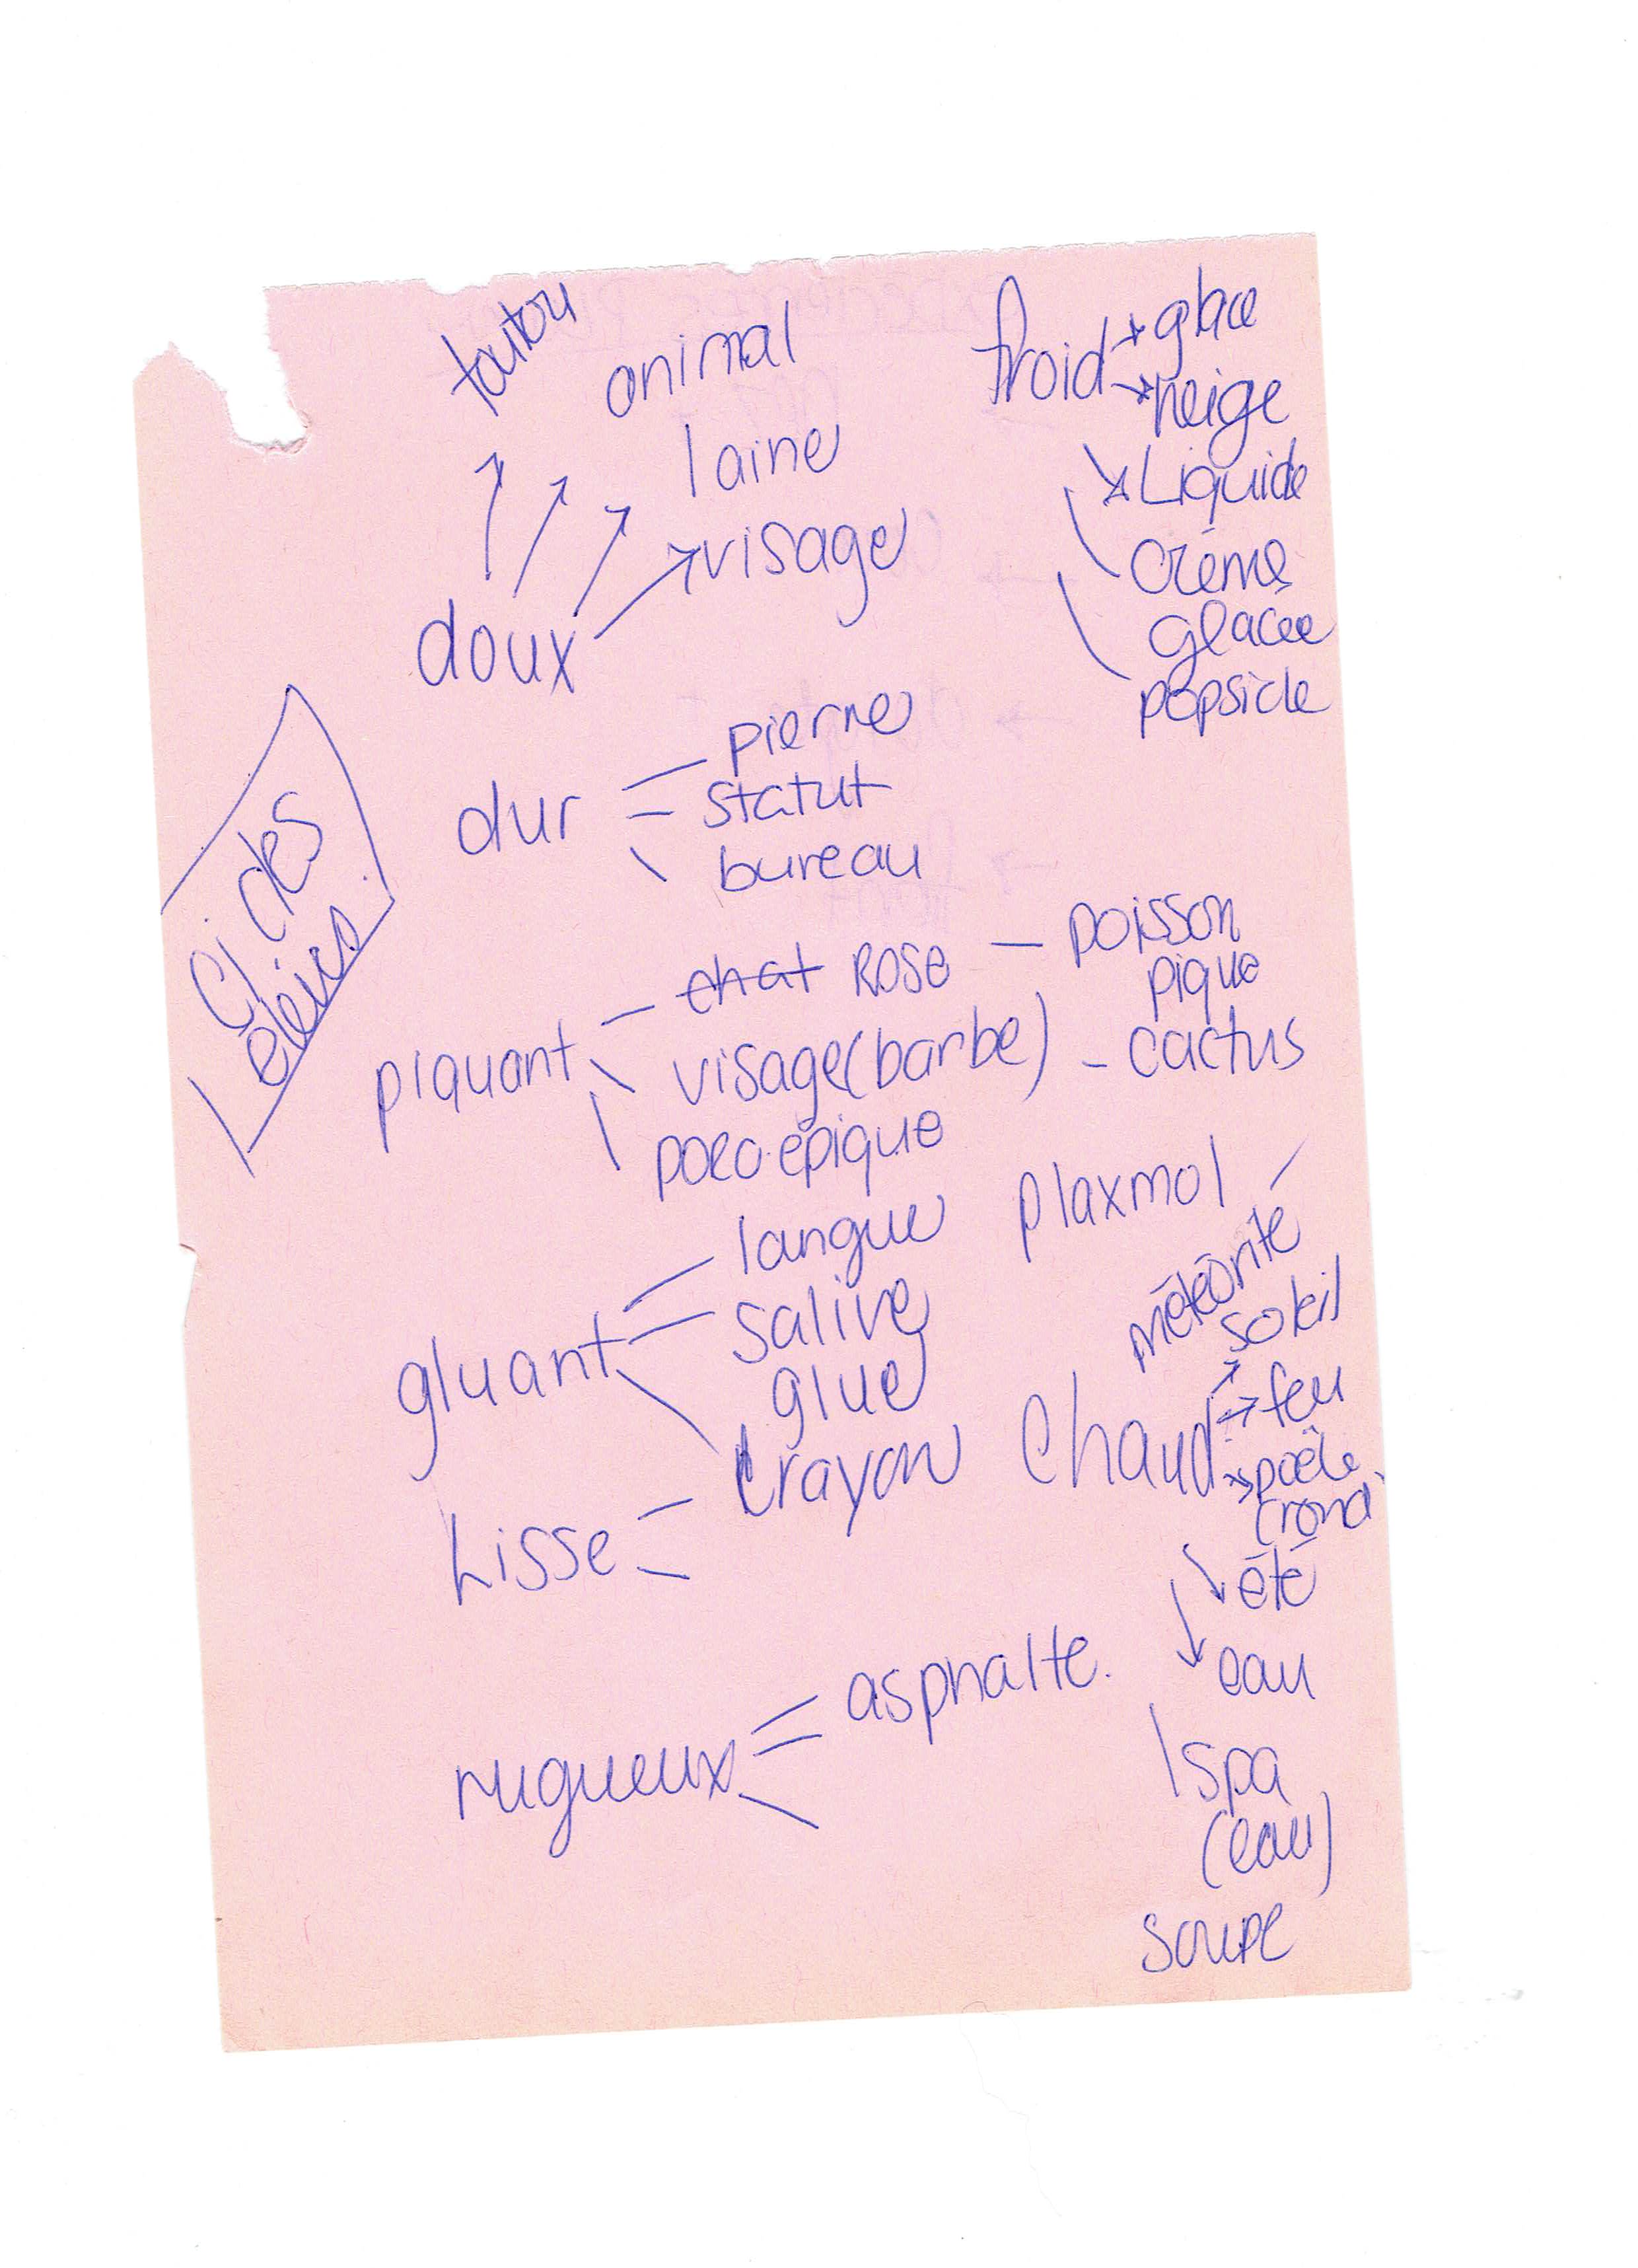 toutou
animal
laine
visage
doux
froid → glace
→ neige
Liquide
crème
glacée
popsicle
Ci des
élèves
dur
pierre
statut
bureau
piquant – chat Rose – poisson
pique
visage(barbe) – cactus
porc-épique
gluant
langue
salive
glue
plaxmol
Lisse – crayon
chaud
météorite
soleil
→ feu
→ poêle
(rond)
été
eau
spa
(eau)
soupe
rugueux
asphalte.